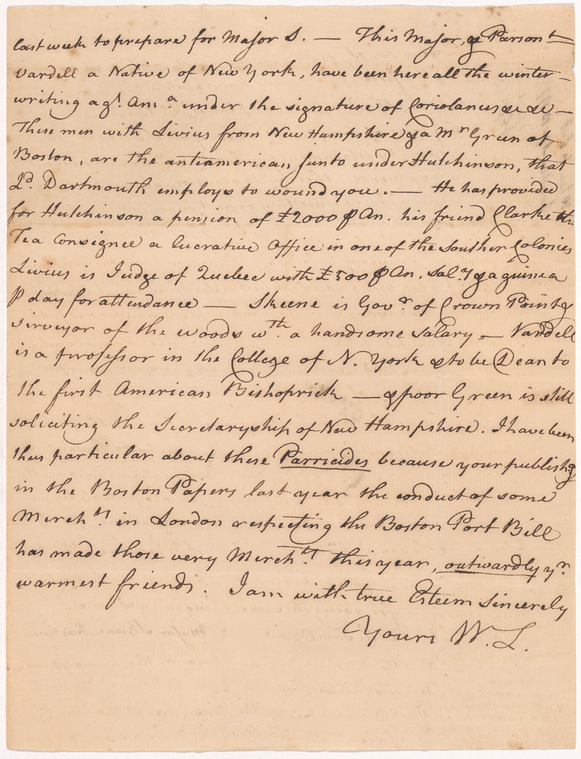 last week to prepare for Major S. — This Major, & Parson
Vardell a Native of New York, have been here all the winter —
writing agt. Ama. under the signature of Coriolanus &c &c —
These men with Livius from New Hampshire & a Mr Green of
Boston, are the antiamerican Junto under Hutchinson, that
Ld. Dartmouth employs to wound you. — He has provided
for Hutchinson a pension of £2000 ⅌ An. his friend Clarke the
Tea Consignee a lucrative Office in one of the Southern Colonies
Livius is Judge of Quebec with £500 ⅌ An. Saly & a guinea
⅌ day for attendance — Skeene is Govr. of Crown Point &
surveyor of the woods wth. a handsome Salary — Vardell
is a professor in the College of N. York & to be Dean to
the first American Bishoprick — & poor Green is still
soliciting the Secretaryship of New Hampshire. I have been
thus particular about these Parricides because your publishg
in the Boston Papers last year the conduct of some
Merchts in London respecting the Boston Port Bill
has made those very Merchts this year, outwardly yr.
warmest friends. I am with true Esteem Sincerely
Yours W. L.